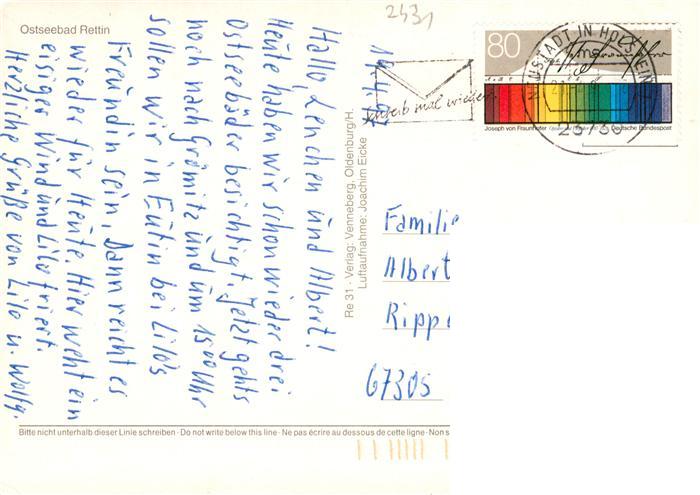 Ostseebad Rettin
2431
Hallo, Lenchen und Albert!
Heute haben wir schon wieder drei
Ostseebäder besichtigt. Jetzt gehts
noch nach Grömitz und um 1500 Uhr
sollen wir in Eutin bei Lilo's
Freundin sein, Dann reicht es
wieder für Heute. Hier weht ein
eisiger Wind und Lilo friert.
Herzliche Grüße von Lilo u. Wolfg.
Re 31 - Verlag: Venneberg, Oldenburg/H.
Luftaufnahme: Joachim Eicke
80
NEUSTADT IN HOLSTEIN
23730
schreib mal wieder
Joseph von Fraunhofer
Deutsche Bundespost
Familie
Albert
Ripp
67305
Bitte nicht unterhalb dieser Linie schreiben · Do not write below this line · Ne pas écrire au dessous de cette ligne · Non s